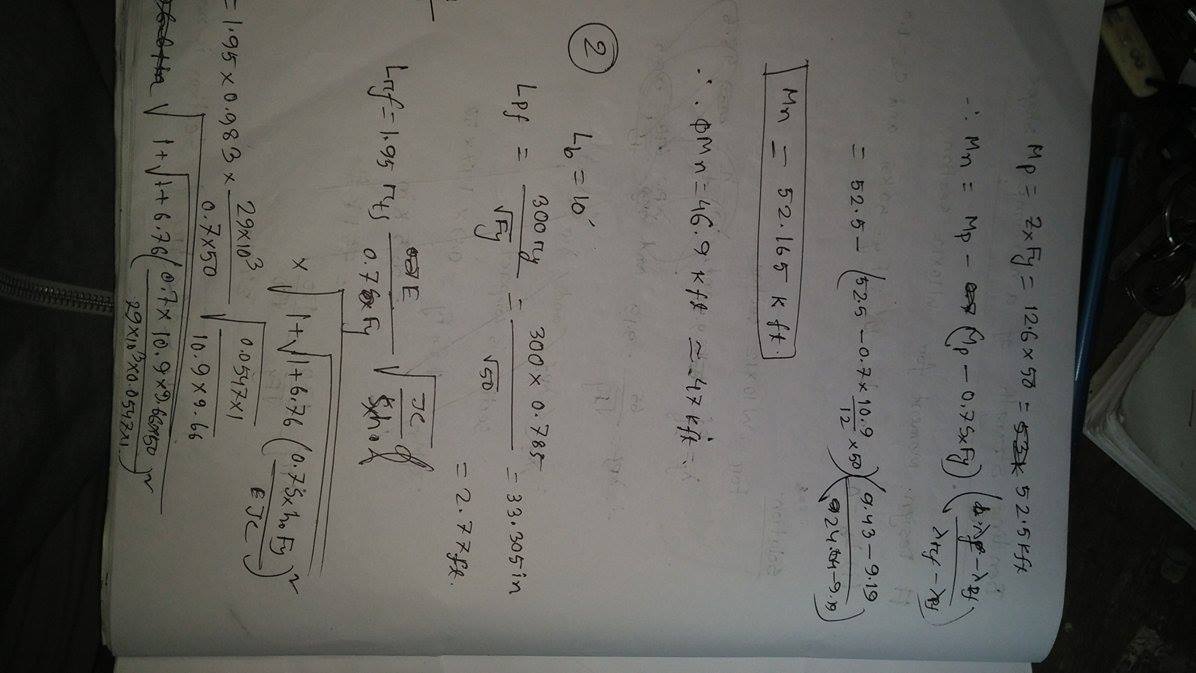 Mp = ZxFy = 12.6 x 50 = 52.5 kft
∴ Mn = Mp - (Mp - 0.7SxFy) (λf - λpf / λrf - λpf)
= 52.5 - (52.5 - 0.7 x 10.9/12 x 50) (9.43 - 9.19 / 24.08 - 9.19)
Mn = 52.165 kft.
∴ ϕMn = 46.9 kft ≈ 47 kft.
2
Lb = 10'
Lpf = 300 ry / √Fy = 300 x 0.785 / √50 = 33.305 in
= 2.77 ft.
Lrf = 1.95 rts E / 0.7Fy √(JC / Sxho)
x √(1 + √(1 + 6.76 (0.7SxhoFy / EJC)²))
= 1.95 x 0.983 x 29x10³ / 0.7x50 √(0.0547x1 / 10.9x9.66)
√(1 + √(1 + 6.76 (0.7 x 10.9 x 9.66x50 / 29x10³x0.0547x1)²))